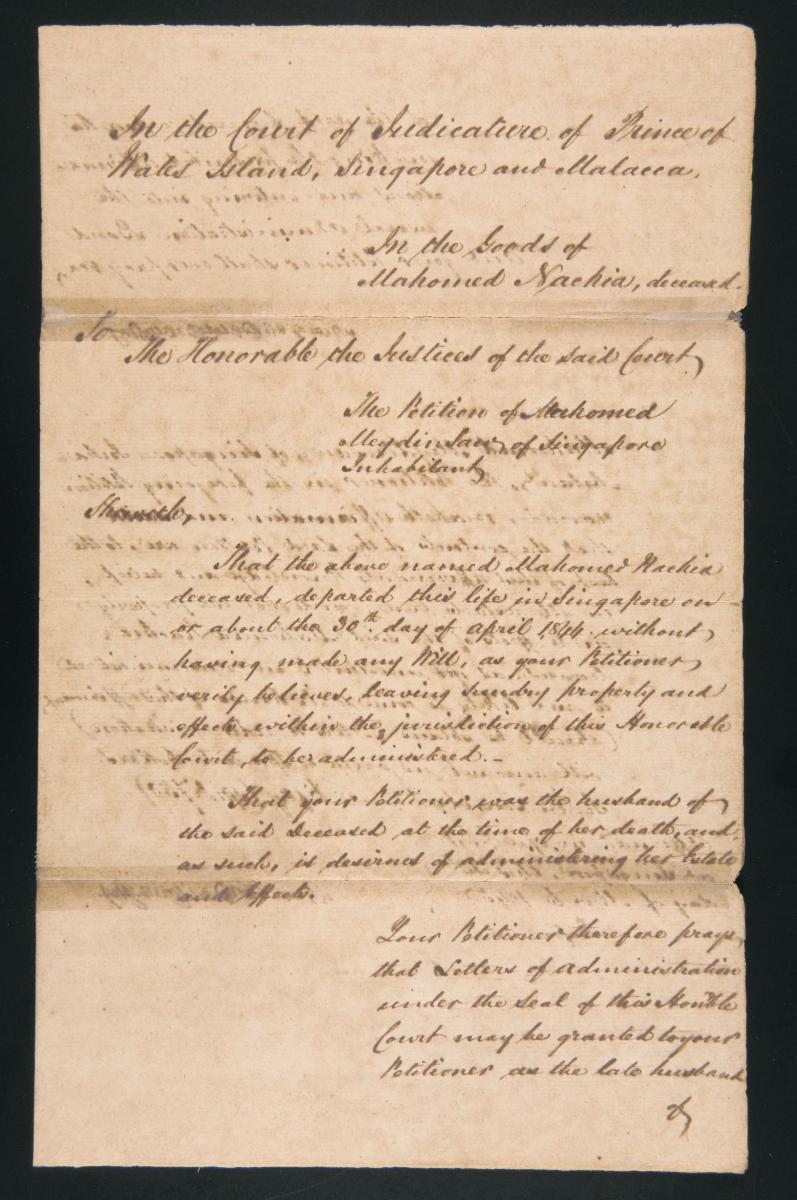 In the Court of Judicature of Prince of
Wales Island, Singapore and Malacca.
In the Goods of
Mahomed Nachia, deceased.
To
The Honorable the Justices of the said Court,
The Petition of Mahomed
Meydinsaw of Singapore
Inhabitant,
Sheweth,
That the above named Mahomed Nachia
deceased, departed this life in Singapore on
or about the 30th day of April 1844 without
having made any Will, as your Petitioner
verily believes, leaving sundry property and
effects within the jurisdiction of this Honorable
Court, to be administered.-
That your Petitioner was the husband of
the said Deceased at the time of her death, and
as such, is desirous of administering her Estate
and Effects.
Your Petitioner therefore prays,
that Letters of administration
under the Seal of this Honble
Court may be granted to your
Petitioner as the late husband
of